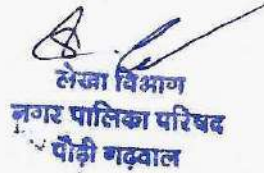 लेखा विभाग
नगर पालिका परिषद
पौढ़ी गढ़वाल